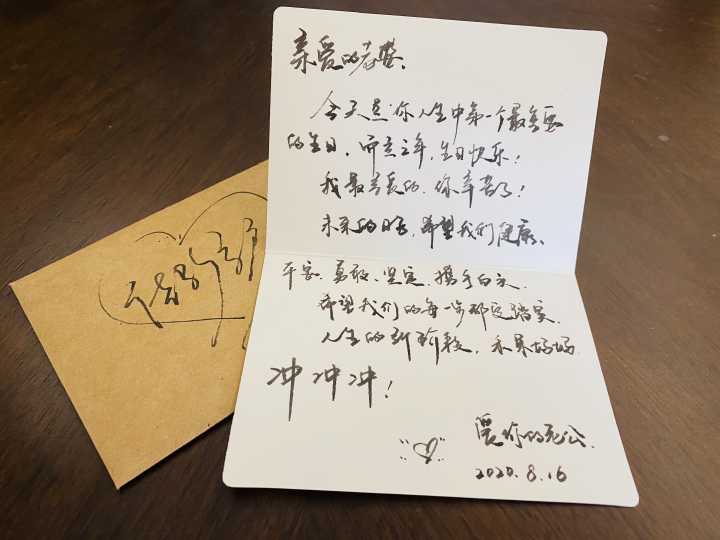 亲爱的老婆、
今天是你人生中第一个最重要
的生日，而立之年，生日快乐！
我最亲爱的，你辛苦了！
未来的日子，希望我们健康、
平安、勇敢、坚定、携手白头
希望我们的每一步都更踏实
人生的新阶段，未来好好
冲冲冲！
爱你的老公
2020.8.16